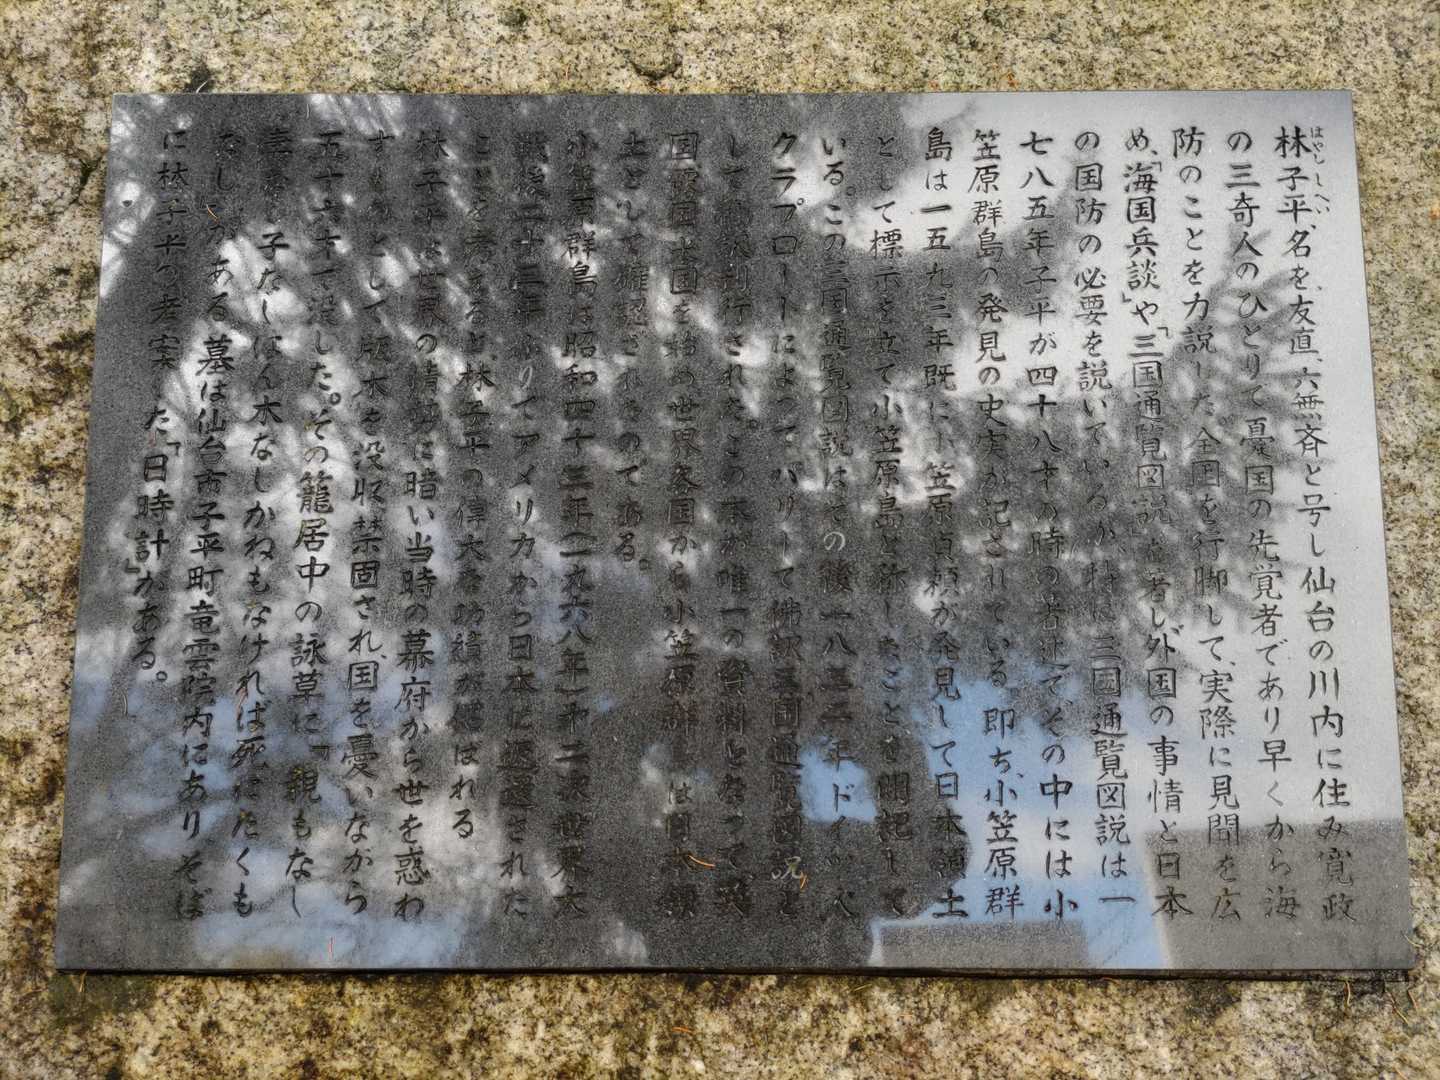 林子平、名を友直、六無斉と号し仙台の川内に住み寛政
の三奇人のひとりで憂国の先覚者であり早くから海
防のことを力説した。全国を行脚して、実際に見聞を広
め、「海国兵談」や「三国通覧図説」を著し外国の事情と日本
の国防の必要を説いているが、特に三国通覧図説は一
七八五年子平が四十八才の時の著述で、その中には小
笠原群島の発見の史実が記されている。即ち、小笠原群
島は一五九三年既に小笠原貞頼が発見して日本領土
として標示を立て小笠原島と称したことを明記して
いる。この三国通覧図説はその後一八三二年ドイツ人
クラプロートによって、パリーで佛訳三国通覧図説と
して翻訳刊行された。この本が唯一の資料となって、英
国露国米国を始め世界各国から小笠原群島は日本領
土として確認されたのである。
小笠原群島は昭和四十三年(一九六八年)第二次世界大
戦後二十三年ぶりでアメリカから日本に返還された
ことを考えると、林子平の偉大な功績が偲ばれる
林子平は世界の情勢に暗い当時の幕府から世を惑わ
すものとして版木を没収禁固され、国を憂いながら
五十六才で没した。その籠居中の詠草に、「親もなし
妻なし子なしはん木なしかねもなければ死にたくも
なし」がある。墓は仙台市子平町竜雲院内にありそば
に林子平の考案した「日時計」がある。